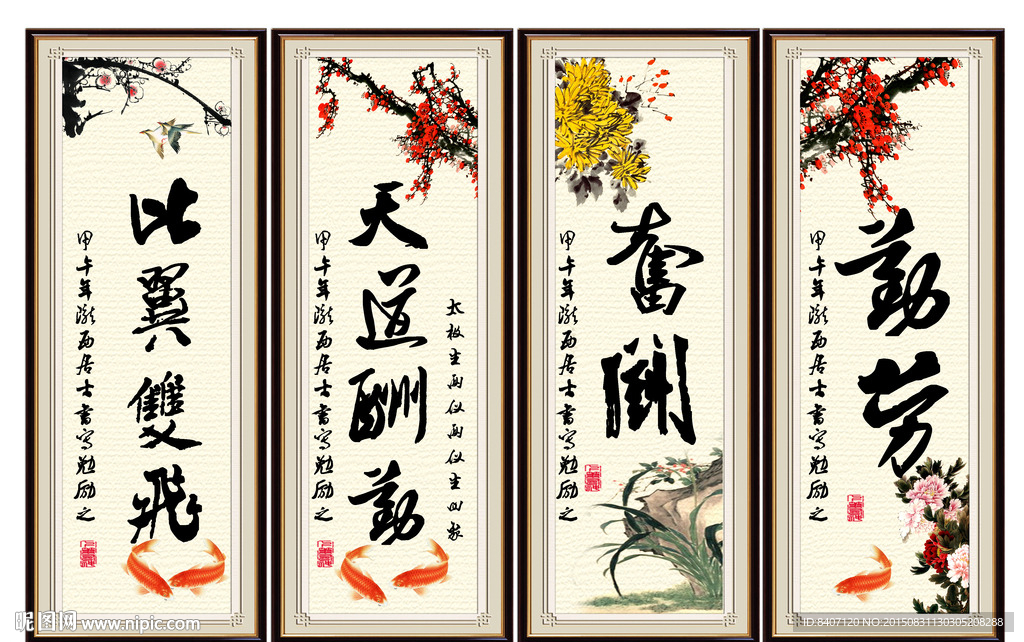 比翼雙飛
甲午年隴西居士書寫勉励之
天道酬勤
太极生两仪两仪生四象
甲午年隴西居士書寫勉励之
奮鬭
甲午年隴西居士書寫勉励之
勤劳
甲午年隴西居士書寫勉励之
昵图网 www.nipic.com
ID:8407120 NO:20150831130305208288